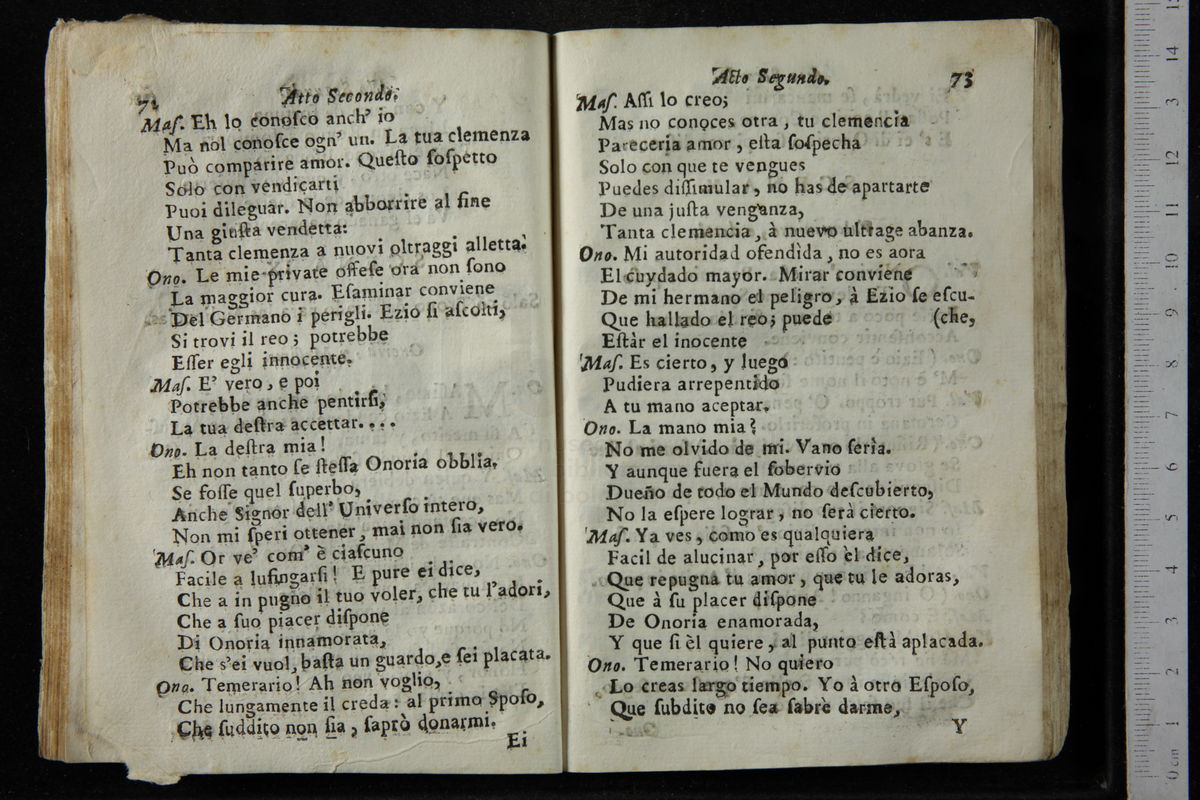 72
Atto Secondo.
Maſ. Eh lo conoſco anch' io
Ma nol conoſce ogn' un. La tua clemenza
Può comparire amor. Queſto ſoſpetto
Solo con vendicarti
Puoi dileguar. Non abborrire al fine
Una giuſta vendetta:
Tanta clemenza a nuovi oltraggi alletta.
Ono. Le mie private offeſe ora non ſono
La maggior cura. Eſaminar conviene
Del Germano i perigli. Ezio ſi aſcolti,
Si trovi il reo; potrebbe
Eſſer egli innocente.
Maſ. E' vero, e poi
Potrebbe anche pentirſi,
La tua deſtra accettar....
Ono. La deſtra mia!
Eh non tanto ſe ſteſſa Onoria obblia.
Se foſſe quel ſuperbo,
Anche Signor dell' Univerſo intero,
Non mi ſperi ottener, mai non ſia vero.
Maſ. Or ve' com' è ciaſcuno
Facile a luſingarſi! E pure ei dice,
Che a in pugno il tuo voler, che tu l'adori,
Che a ſuo piacer diſpone
Di Onoria innamorata,
Che s'ei vuol, baſta un guardo, e ſei placata.
Ono. Temerario! Ah non voglio,
Che lungamente il creda: al primo Spoſo,
Che ſuddito non ſia, ſaprò donarmi.
Ei
Acto Segundo.
73
Maſ. Aſſi lo creo;
Mas no conoces otra, tu clemencia
Pareceria amor, eſta ſoſpecha
Solo con que te vengues
Puedes diſſimular, no has de apartarte
De una juſta venganza,
Tanta clemencia, à nuevo ultrage abanza.
Ono. Mi autoridad ofendìda, no es aora
El cuydado mayor. Mirar conviene
De mi hermano el peligro, à Ezio ſe eſcu-
Que hallado el reo; puede (che,
Eſtàr el inocente
Maſ. Es cierto, y luego
Pudiera arrepentido
A tu mano aceptar.
Ono. La mano mia?
No me olvido de mi. Vano ſerìa.
Y aunque fuera el ſobervio
Dueño de todo el Mundo deſcubierto,
No la eſpere lograr, no ſerà cierto.
Maſ. Ya ves, como es qualquiera
Facil de alucinar, por eſſo èl dice,
Que repugna tu amor, que tu le adoras,
Que à ſu placer diſpone
De Onoria enamorada,
Y que ſi èl quiere, al punto eſtà aplacada.
Ono. Temerario! No quiero
Lo creas largo tiempo. Yo à otro Eſpoſo,
Que ſubdito no ſea ſabrè darme,
Y